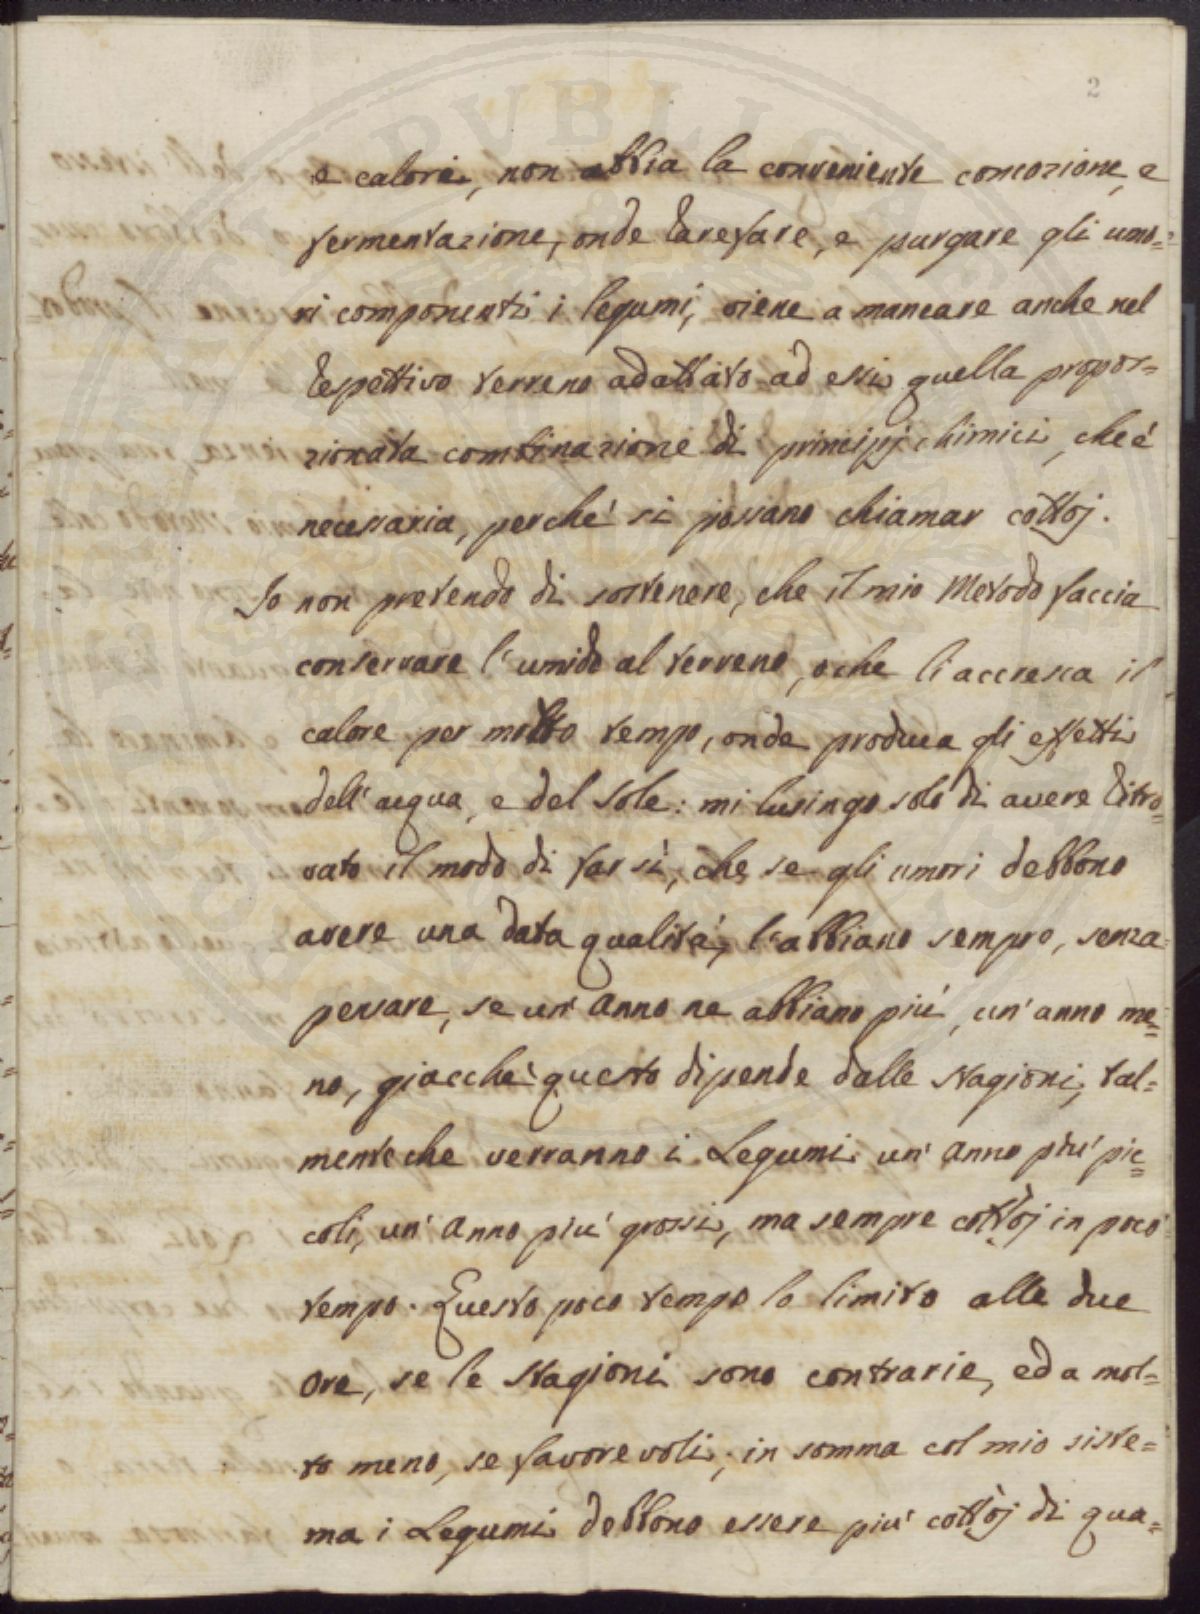 2
e calore, non abbia la conveniente concozione, e
fermentazione, onde rarefare, e purgare gli umo=
ri componenti i legumi, viene a mancare anche nel
respettivo terreno adattato ad essi quella propor=
zionata combinazione di principj chimici, che è
necessaria, perche' si possano chiamar cottoj.
Io non pretendo di sostenere, che il mio Metodo faccia
conservare l'umido al terreno, o che li accresca il
calore per molto tempo, onde produca gli effetti
dell'acqua, e del Sole: mi lusingo solo di avere ritro=
vato il modo di far sì, che se gli umori debbono
avere una data qualità, l'abbiano sempre, senza
pensare, se un' anno ne abbiano più, un' anno me=
no, giacche' questo dipende dalle Stagioni, tal=
mente che verranno i Legumi un' anno piu' pic=
coli, un' anno piu' grossi, ma sempre cottoj in poco
tempo. Questo poco tempo lo limito alle due
ore, se le Stagioni sono contrarie, ed a mol=
to meno, se favorevoli; in somma col mio siste=
ma i Legumi debbono essere piu' cottoj di qua=